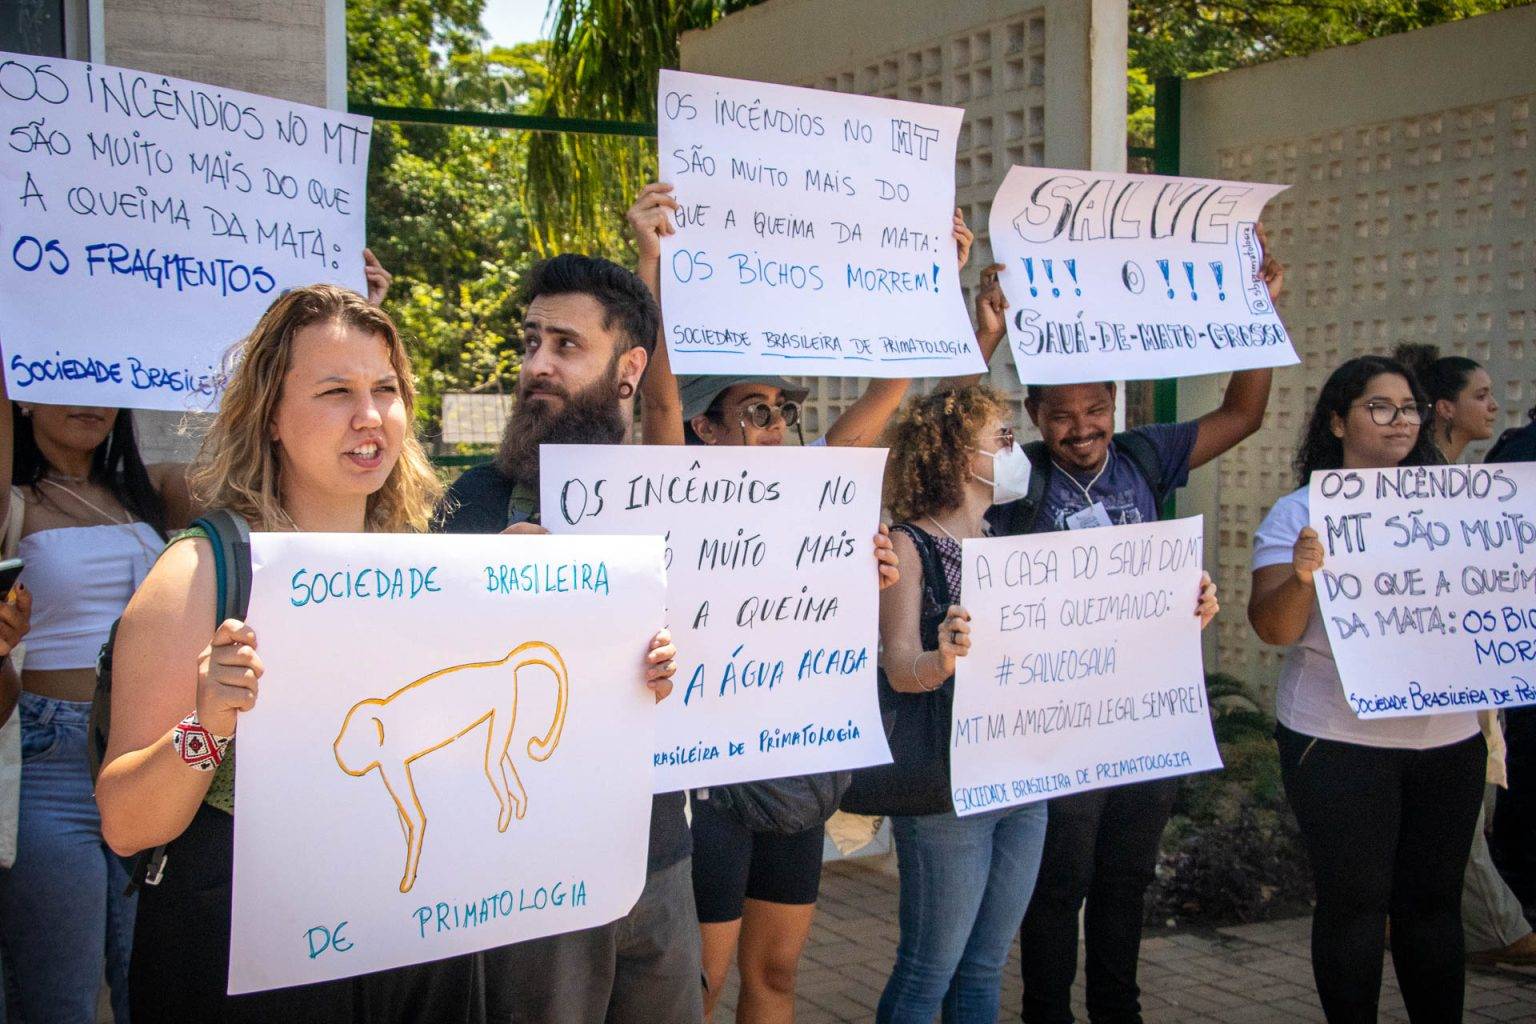 OS INCÊNDIOS NO MT
SÃO MUITO MAIS DO QUE
A QUEIMA DA MATA:
OS FRAGMENTOS
SOCIEDADE BRASILEIR
OS INCÊNDIOS NO MT
SÃO MUITO MAIS DO
QUE A QUEIMA DA MATA:
OS BICHOS MORREM!
SOCIEDADE BRASILEIRA DE PRIMATOLOGIA
SALVE
!!! O !!!
SAUÁ-DE-MATO-GROSSO
@sbprimatologia
SOCIEDADE BRASILEIRA
DE PRIMATOLOGIA
OS INCÊNDIOS NO
MUITO MAIS
A QUEIMA
A ÁGUA ACABA
RASILEIRA DE PRIMATOLOGIA
A CASA DO SAUÁ DO MT
ESTÁ QUEIMANDO:
#SALVEOSAUÁ
MT NA AMAZÔNIA LEGAL SEMPRE!
SOCIEDADE BRASILEIRA DE PRIMATOLOGIA
OS INCÊNDIOS
MT SÃO MUITO
DO QUE A QUEIM
DA MATA: OS BIC
MOR
SOCIEDADE BRASILEIRA DE PRI